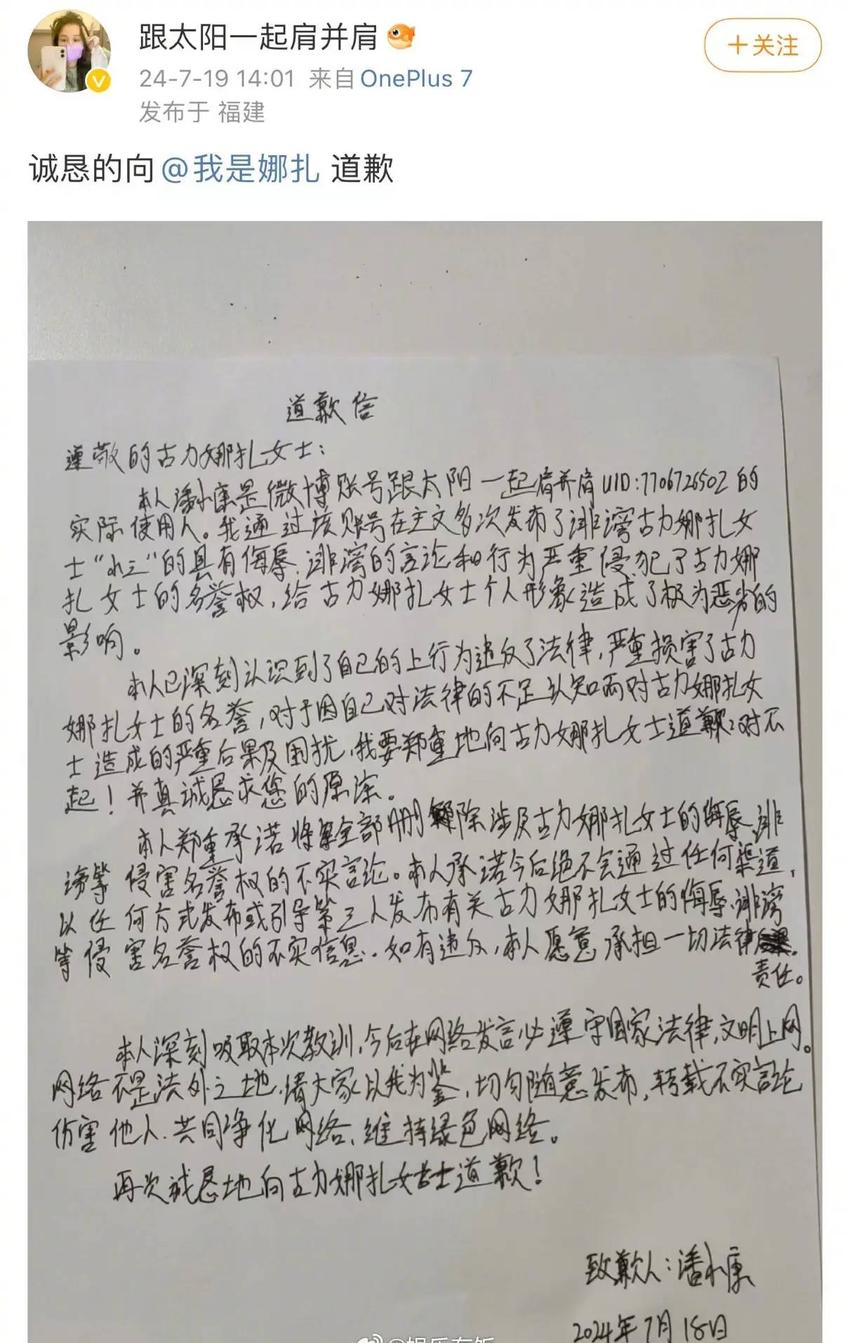 跟太阳一起肩并肩
+关注
24-7-19 14:01 来自 OnePlus 7
发布于 福建
诚恳的向 @我是娜扎 道歉
道歉信
遵敬的古力娜扎女士：
本人潘小康是微博账号跟太阳一起肩并肩UID:7706726502的
实际使用人。我通过该账号在主文多次发布了诽谤古力娜扎女
士“小三”的具有侮辱、诽谤的言论和行为严重侵犯了古力娜
扎女士的名誉权，给古力娜扎女士个人形象造成了极为恶劣的
影响。
本人已深刻认识到了自己的上行为违反了法律，严重损害了古力
娜扎女士的名誉，对于因自己对法律的不足认知而对古力娜扎女
士造成的严重后果及困扰，我要郑重地向古力娜扎女士道歉：对不
起！并真诚恳求您的原谅。
本人郑重承诺将全部删除涉及古力娜扎女士的侮辱、诽
谤等侵害名誉权的不实言论。本人承诺今后绝不会通过任何渠道，
以任何方式发布或引导第三人发布有关古力娜扎女士的侮辱、诽谤
等侵害名誉权的不实信息。如有违反，本人愿意承担一切法律
责任。
本人深刻吸取本次教训，今后在网络发言必遵守国家法律，文明上网。
网络不是法外之地，请大家以我为鉴，切勿随意发布，转载不实言论
伤害他人．共同净化网络、维持绿色网络。
再次诚恳地向古力娜扎女士道歉！
致歉人：潘小康
2024年7月18日
@娱乐有饭